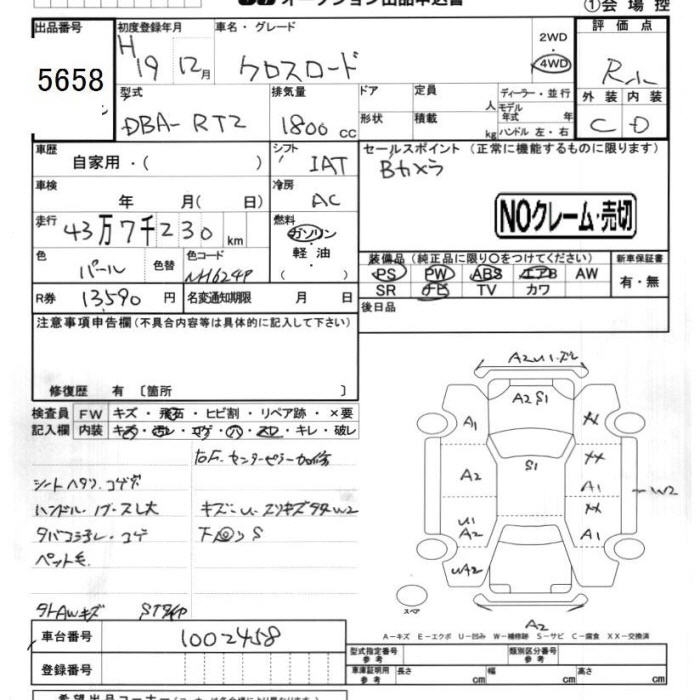 オークション出品申込書
①会場控
出品番号 初度登録年月 車名・グレード 評価点
5658 H 19 12月 クロスロード 2WD 4WD
型式 排気量 ドア 定員 人 ディーラー・並行 外装 内装
DBA-RT2 1800 cc 形状 積載 kg モデル年式 年 ハンドル 左・右 C D
車歴 自家用・( ) シフト IAT セールスポイント(正常に機能するものに限ります)
Bカメラ
車検 年 月( 日) 冷房 AC
NOクレーム・売切
走行 43万7千230 km 燃料 ガソリン 軽油 ( )
色 パール 色替 色コード NH624P
装備品(純正品に限り○をつけてください) 新車保証書
PS PW ABS エアB AW 有・無
SR ナビ TV カワ
R券 13590 円 名変通知期限 月 日 後日品
注意事項申告欄(不具合内容等は具体的に記入して下さい)
修復歴 有 〔箇所 〕
検査員 FW キズ・飛石・ヒビ割・リペア跡・×要
記入欄 内装 キズ・ヨゴレ・コゲ・穴・スレ・キレ・破レ
シートヘタリ、コゲ穴
ハンドル・ スレ大 キズ・U・スリキズ W2
タバコ ・コゲ 下回りS
ペット毛
AWキズ
A2 U1
A2 S1
A1 XX
S1 XX
A2 A1 W2
XX
U1 A2 A1
UA2
スペア
A2
A-キズ E-エクボ U-凹み W-補修跡 S-サビ C-腐食 XX-交換済
車台番号 1002458
登録番号
型式指定番号 参考 類別区分番号 参考
車庫証明用 参考 長さ cm 幅 cm 高さ cm
希望出品コーナー